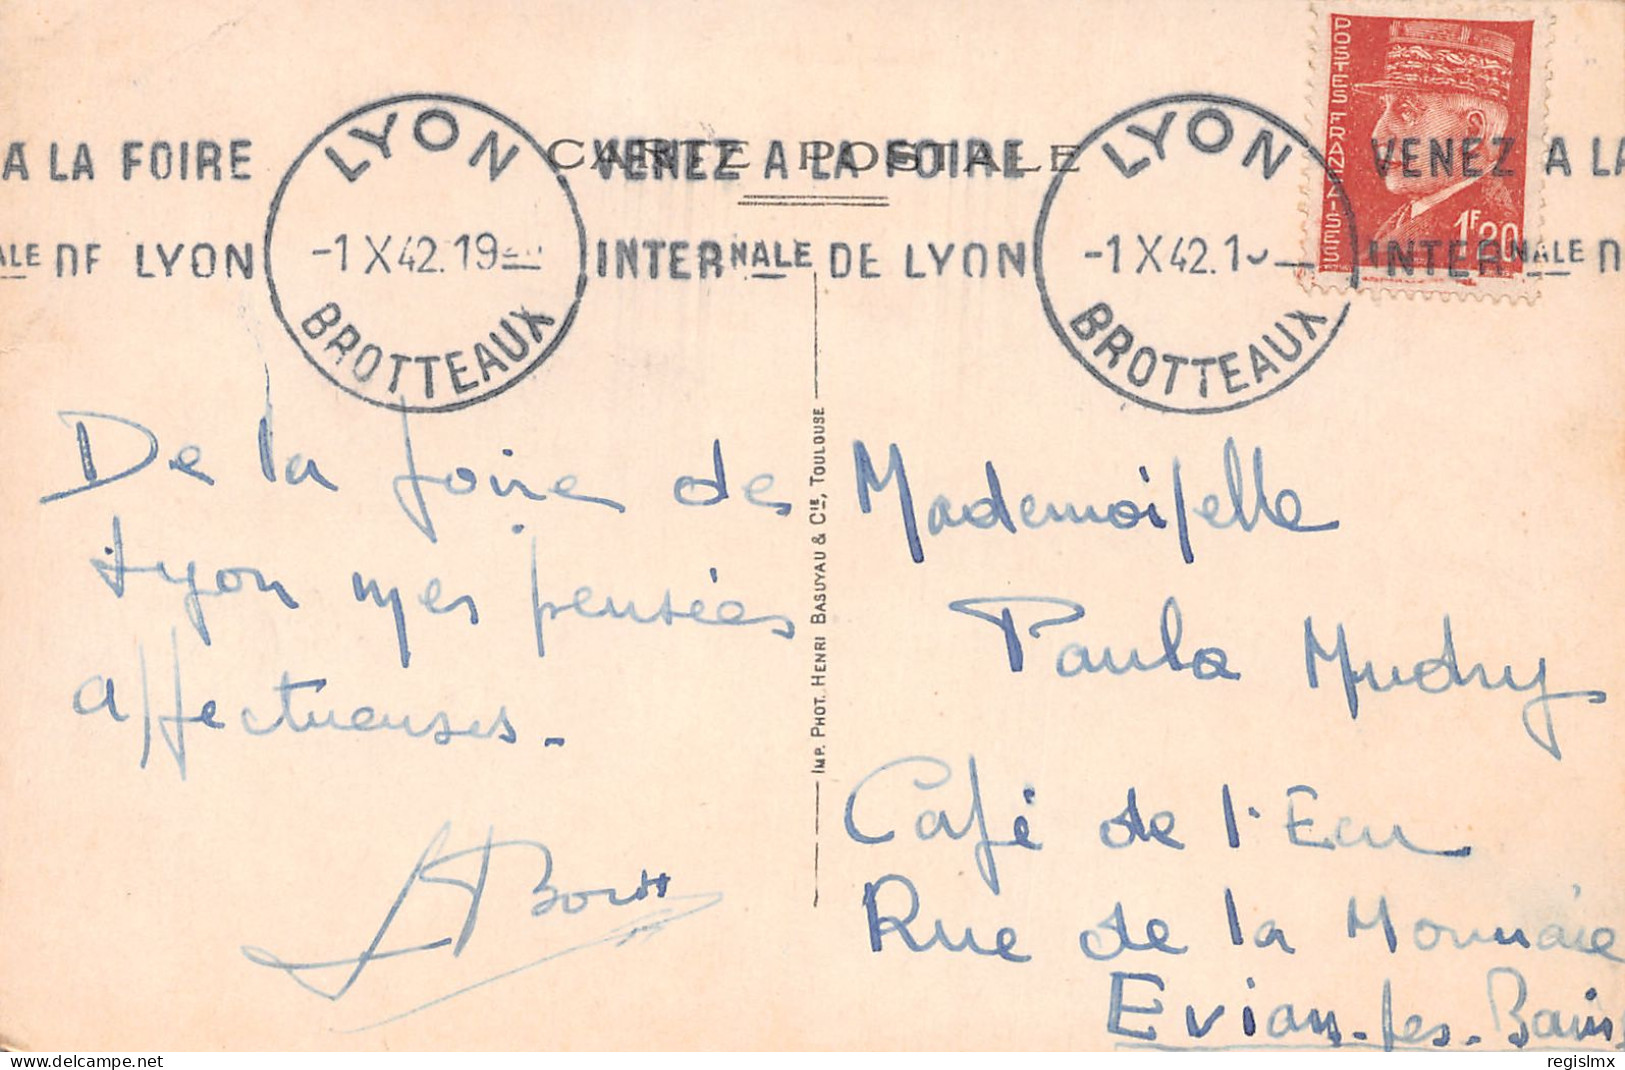 CARTE POSTALE
A LA FOIRE
ALE DE LYON
LYON
-1 X 42.19
BROTTEAUX
VENEZ A LA FOIRE
INTERNALE DE LYON
LYON
-1 X 42.1
BROTTEAUX
VENEZ A LA
INTERNALE D
POSTES FRANÇAISES
1F20
De la foire de
Lyon mes pensées
affectueuses.
IMP. PHOT. HENRI BASUYAU & CIE, TOULOUSE
Mademoiselle
Paula Mudry
Café de l'Eau
Rue de la Monnaie
Evian-les-Bains
delcampe.net
regislmx